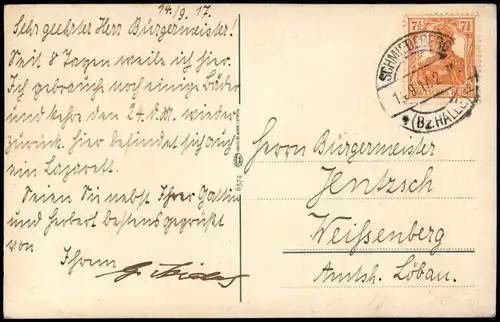 14./9. 17.
Sehr geehrter Herr Bürgermeister!
Seit 8 Tagen weile ich hier.
Ich gebrauch noch einige Bäder
und kehre den 24. d. M. wieder
zurück. Hier befindet sich auch
ein Lazarett.
Seien Sie nebst Ihrer Gattin
und Herbert bestens gegrüßt
von
Ihrem
Herrn Bürgermeister
Jentzsch
Weissenberg
Amtsh. Löbau.
7½ 7½
SCHMIEDEBERG
(BZ. HALLE)
9574